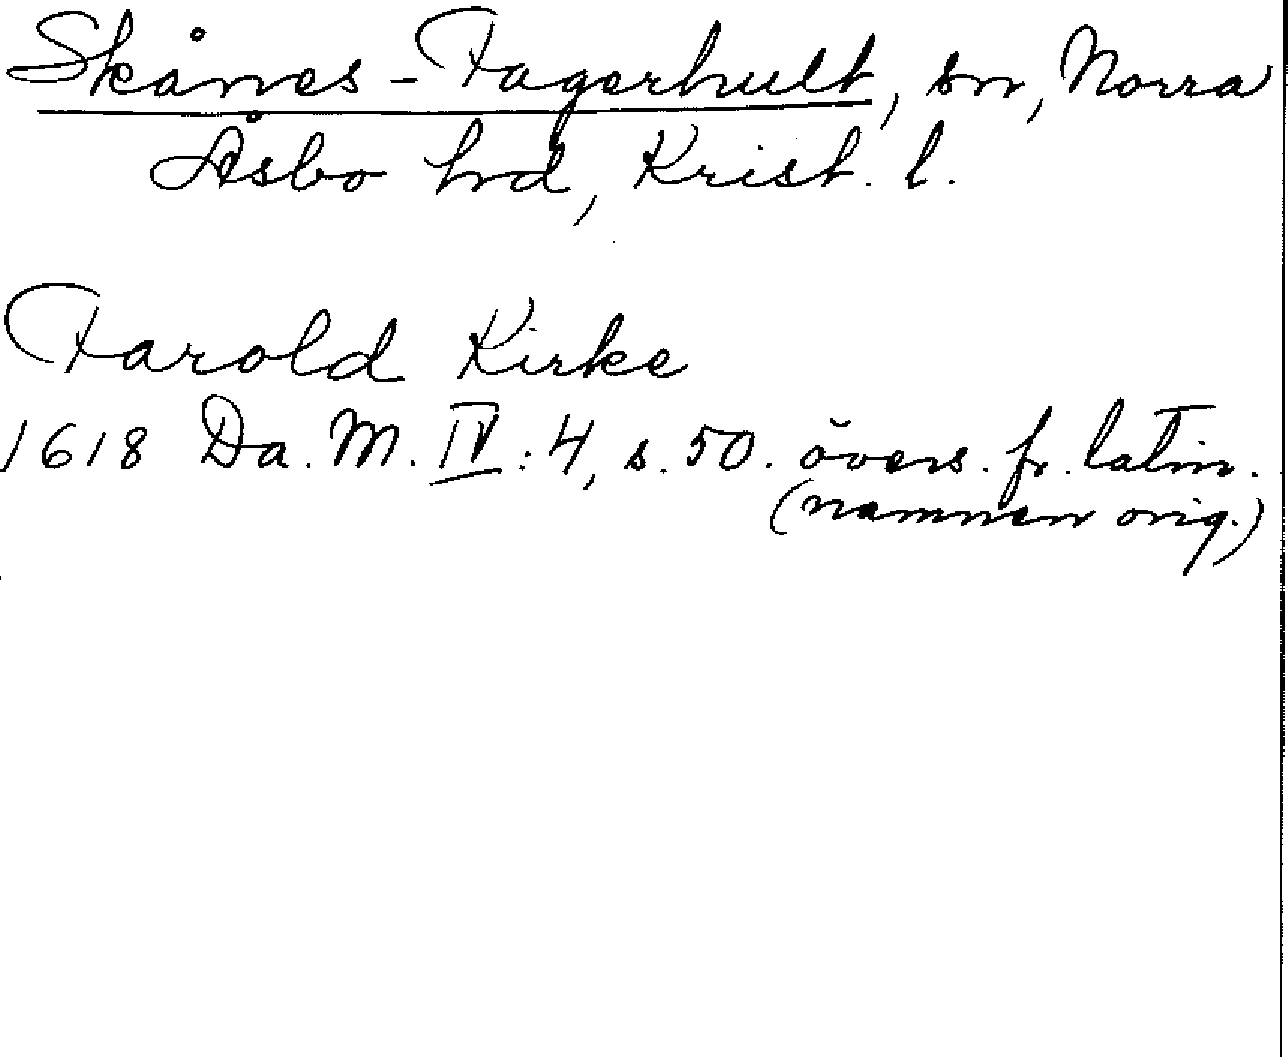 Skånes-Fagerhult, sn, Norra
Åsbo hrd, Krist. l.
Farold Kirke
1618 Da. M. IV:4, s. 50. övers. fr. latin.
(namnen orig.)